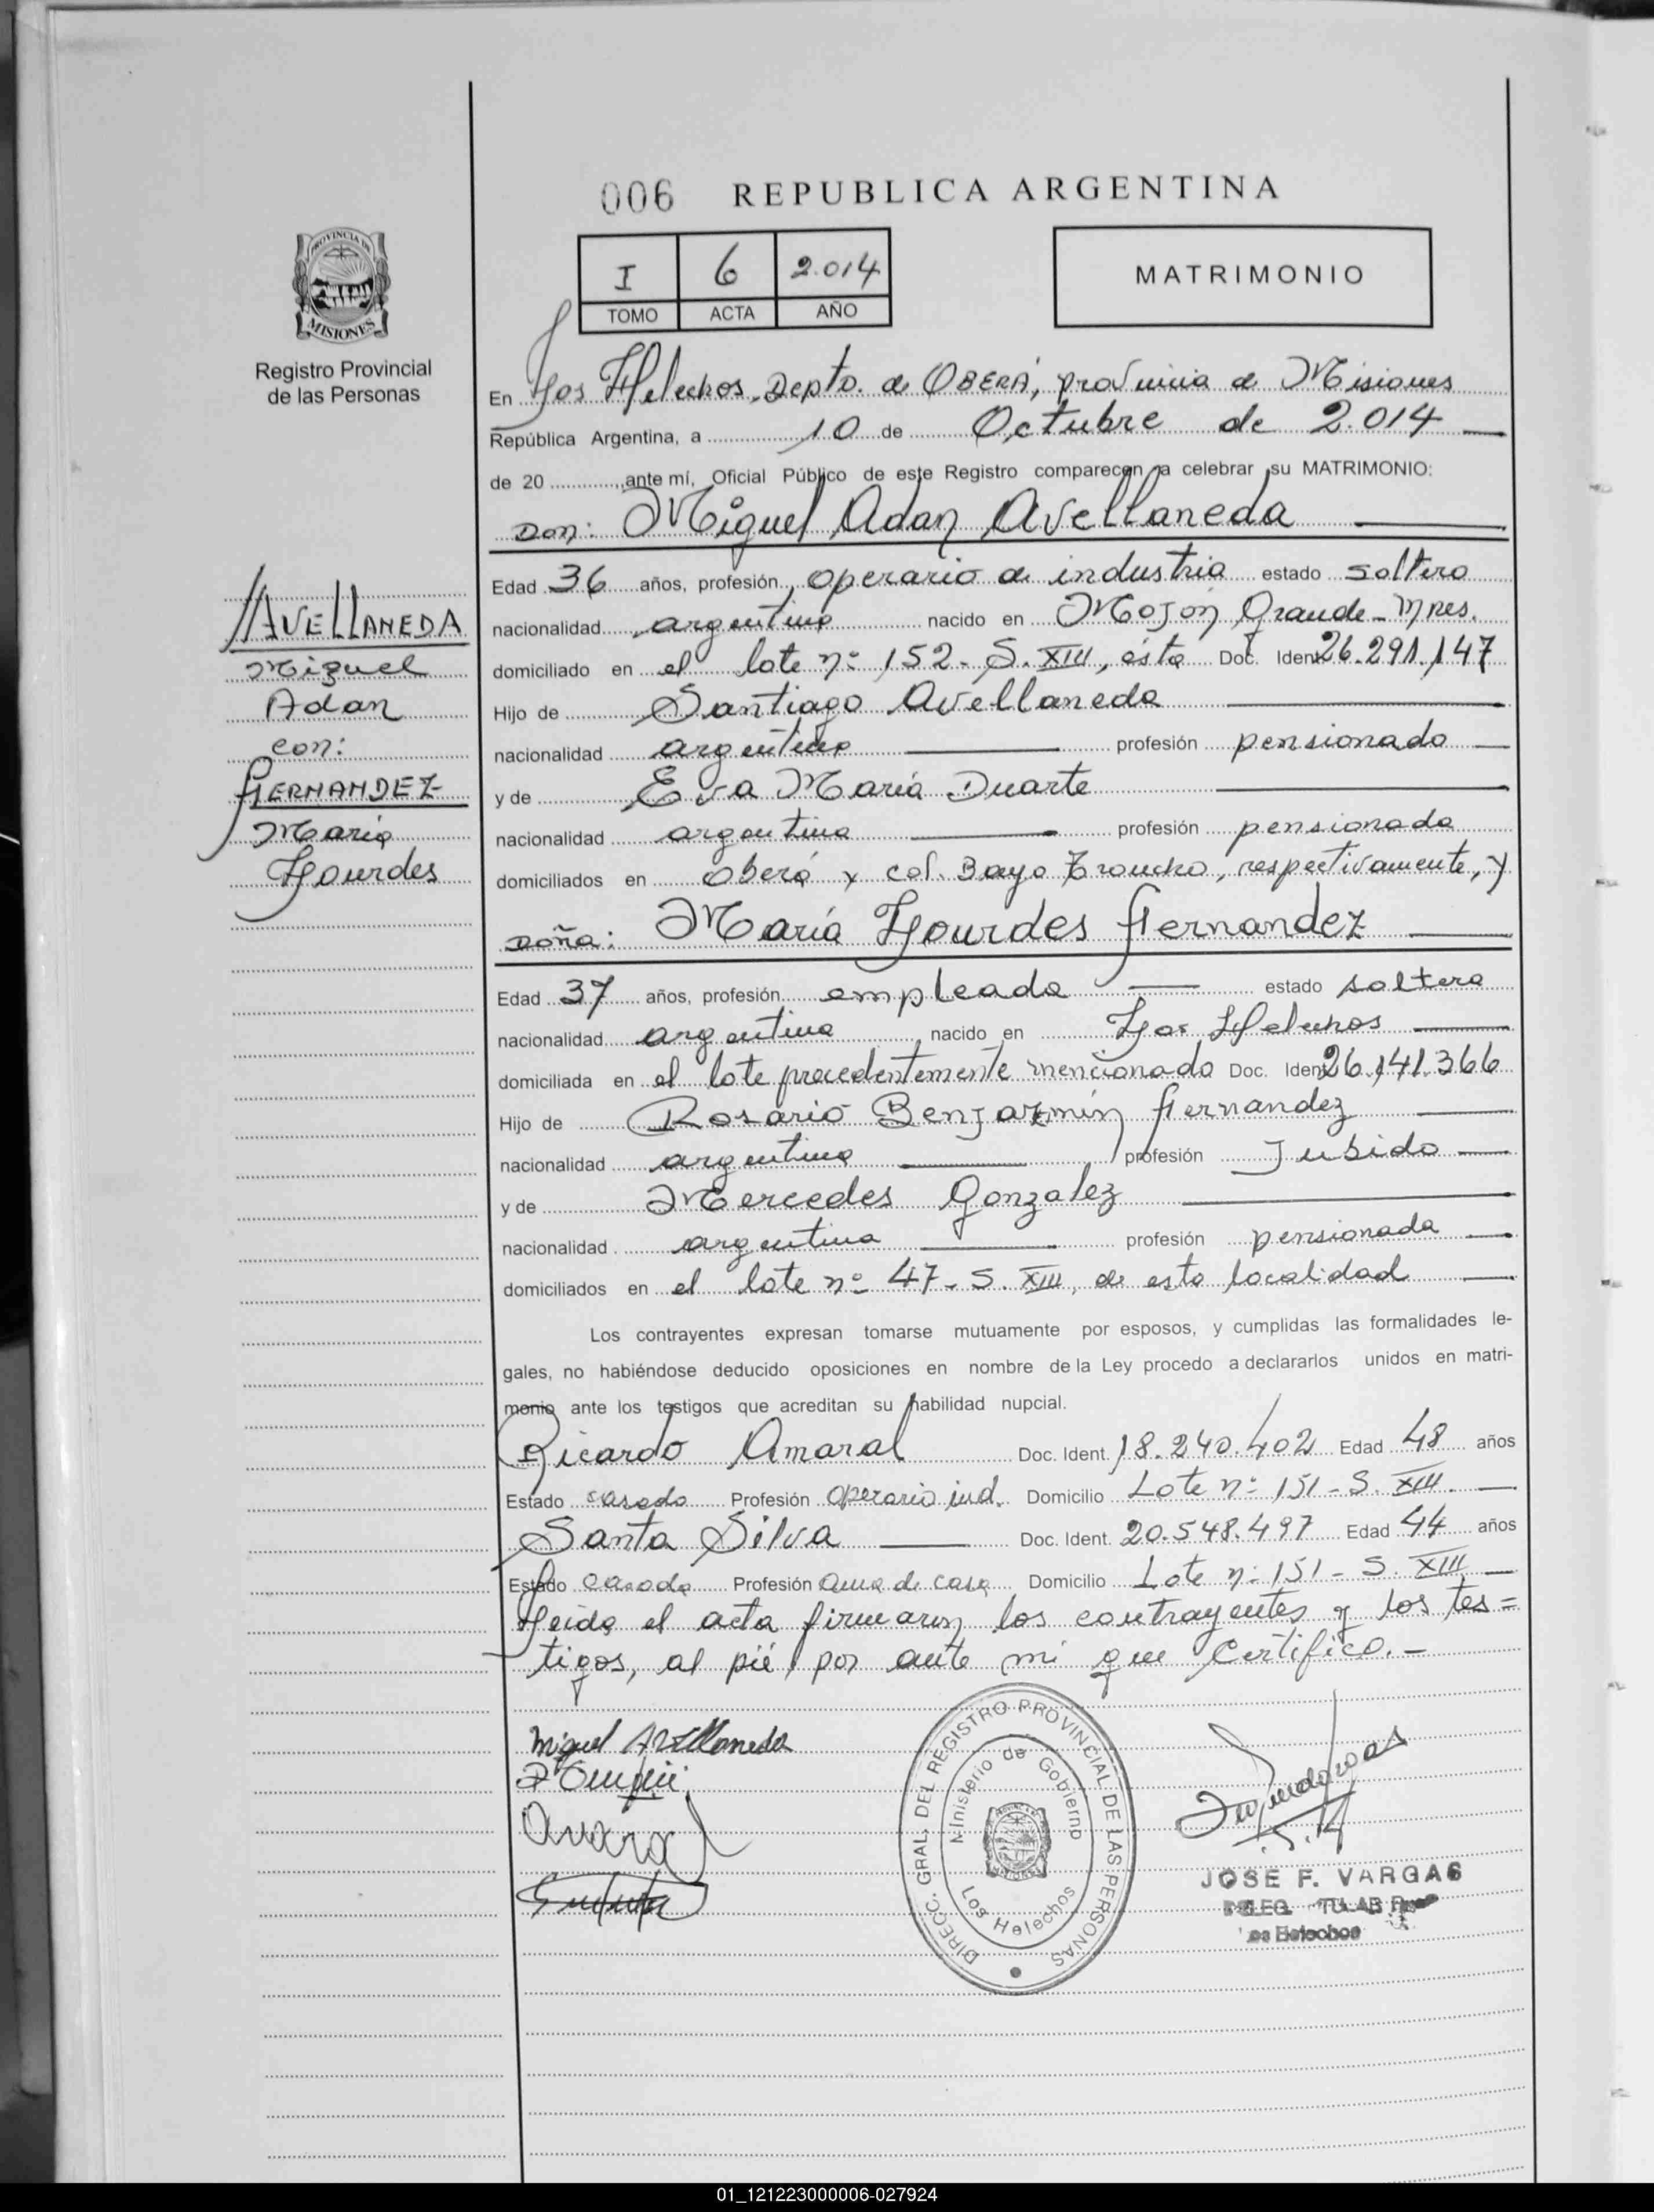 006 REPUBLICA ARGENTINA
PROVINCIA DE
MISIONES
Registro Provincial
de las Personas
I 6 2.014
TOMO ACTA AÑO
MATRIMONIO
En Los Helechos, Depto. de OBERÁ, provincia de Misiones
República Argentina, a 10 de Octubre de 2.014
de 20 , ante mí, Oficial Público de este Registro comparecen a celebrar su MATRIMONIO:
Don: Miguel Adan Avellaneda
Edad 36 años, profesión, operario de industria estado soltero
nacionalidad argentino nacido en Mojón Grande - Mnes.
domiciliado en el lote nº 152 - S. XIII, ésta Doc. Ident 26.291.147
Hijo de Santiago Avellaneda
nacionalidad argentino profesión pensionado
y de Eva María Duarte
nacionalidad argentina profesión pensionada
domiciliados en Oberá y col. Bayo Troncho, respectivamente, y
Doña: María Lourdes Fernandez
Edad 37 años, profesión empleada estado soltera
nacionalidad argentina nacido en Los Helechos
domiciliada en el lote precedentemente mencionado Doc. Ident 26.141.366
Hijo de Rosario Benjazmín Fernandez
nacionalidad argentino profesión Jubido
y de Mercedes Gonzalez
nacionalidad argentina profesión pensionada
domiciliados en el lote nº 47 - S. XIII, de esta localidad
Los contrayentes expresan tomarse mutuamente por esposos, y cumplidas las formalidades le-
gales, no habiéndose deducido oposiciones en nombre de la Ley procedo a declararlos unidos en matri-
monio ante los testigos que acreditan su habilidad nupcial.
Ricardo Amaral Doc. Ident. 18.240.402 Edad 48 años
Estado casado Profesión operario ind. Domicilio Lote nº 151 - S. XIII.
Santa Silva Doc. Ident. 20.548.497 Edad 44 años
Estado casada Profesión ama de casa Domicilio Lote nº 151 - S. XIII
Leída el acta firmaron los contrayentes y los tes=
tigos, al pié, por ante mi que Certifico.-
AVELLANEDA
Miguel
Adan
con:
FERNANDEZ
María
Lourdes
Miguel Avellaneda
Amaral
DIRECC. GRAL. DEL REGISTRO PROVINCIAL DE LAS PERSONAS
Ministerio de Gobierno
Los Helechos
JOSE F. VARGAS
DELEG. TITULAR
Los Helechos
01_121223000006-027924